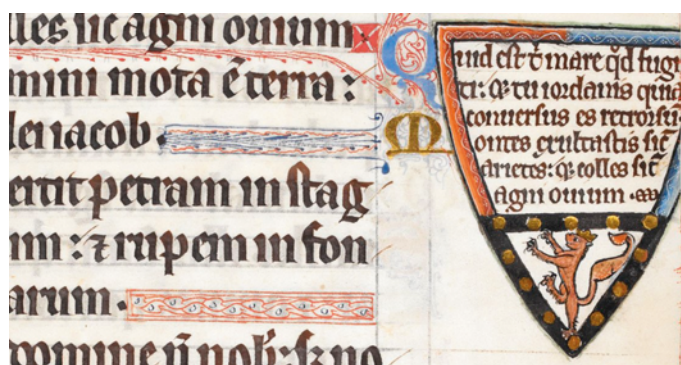 lles sic agni ouium
mini mota ē terra:
dei iacob.
ertit petram in stag
um: ⁊ rupem in fon
arum.
domine n̄ nob̄: sꝫ no
Quid est t̄ mare qd̄ fugi
ti: ⁊ tu iordanis quia
conuersus es retrorsū
Montes exultastis sic̄
arietes: ⁊ colles sic̄
agni ouium